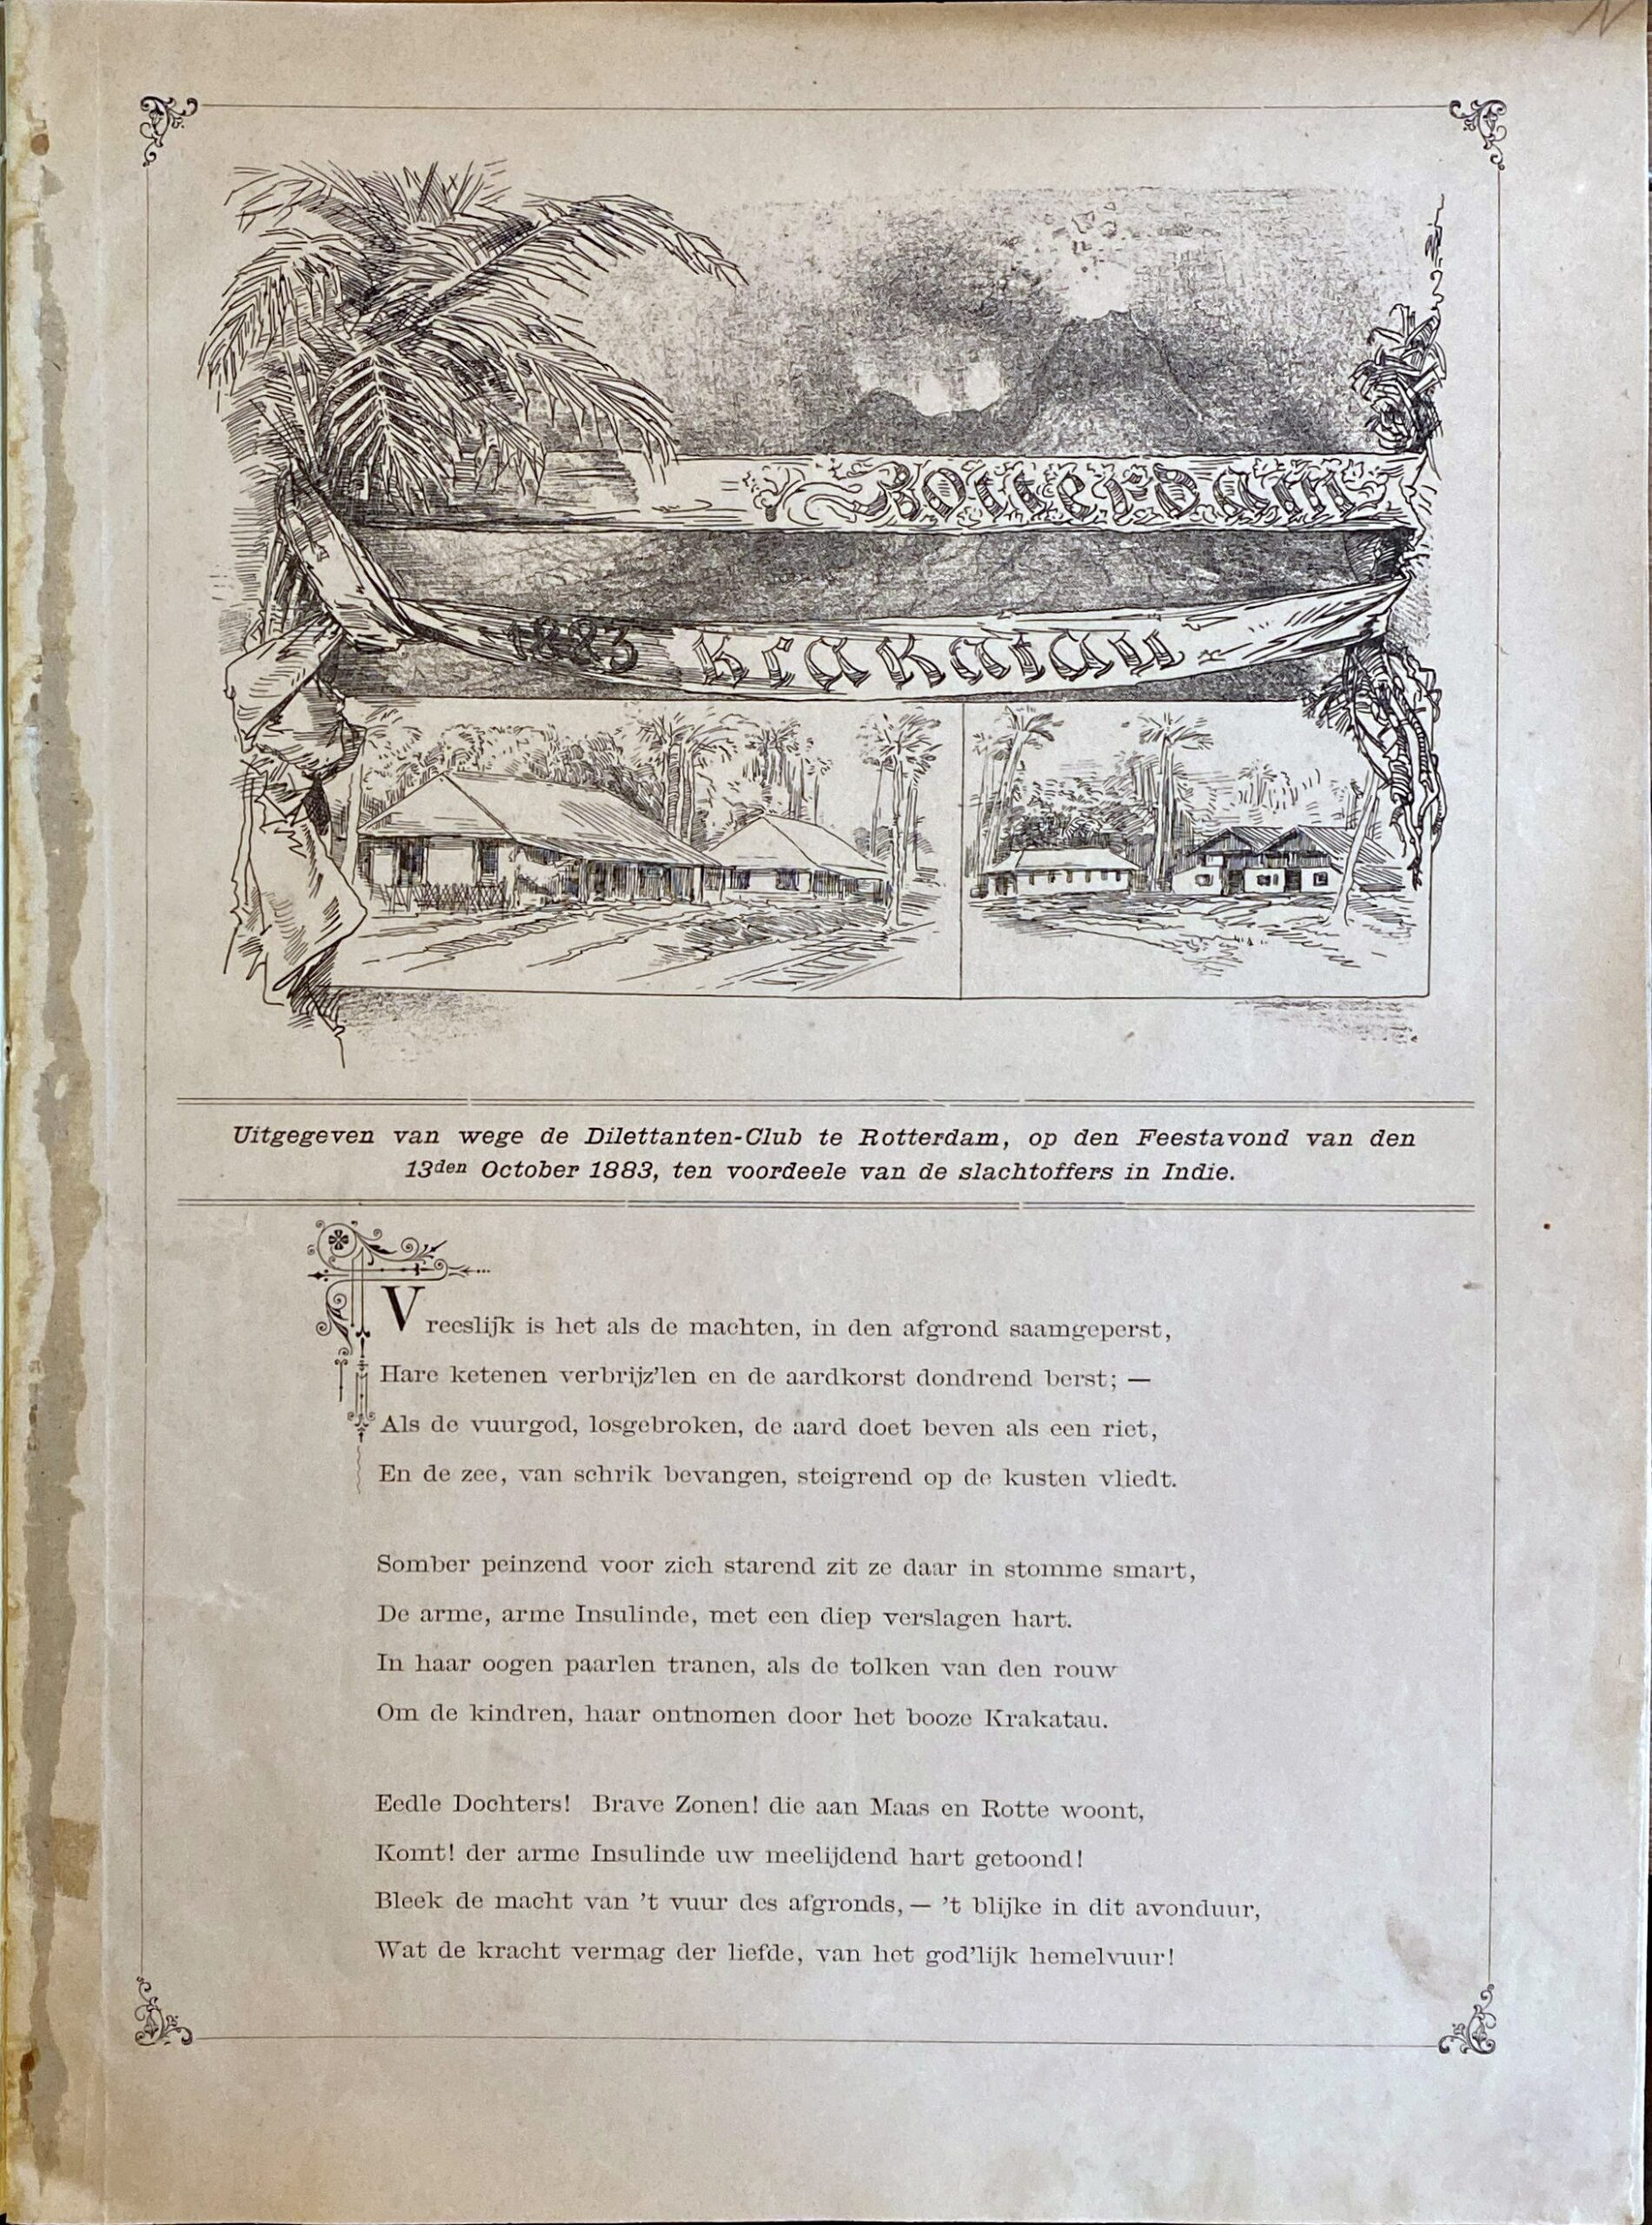 Rotterdam
1883 Krakatau
Uitgegeven van wege de Dilettanten-Club te Rotterdam, op den Feestavond van den
13den October 1883, ten voordeele van de slachtoffers in Indie.
Vreeslijk is het als de machten, in den afgrond saamgeperst,
Hare ketenen verbrijz'len en de aardkorst dondrend berst; —
Als de vuurgod, losgebroken, de aard doet beven als een riet,
En de zee, van schrik bevangen, steigrend op de kusten vliedt.
Somber peinzend voor zich starend zit ze daar in stomme smart,
De arme, arme Insulinde, met een diep verslagen hart.
In haar oogen paarlen tranen, als de tolken van den rouw
Om de kindren, haar ontnomen door het booze Krakatau.
Eedle Dochters! Brave Zonen! die aan Maas en Rotte woont,
Komt! der arme Insulinde uw meelijdend hart getoond!
Bleek de macht van 't vuur des afgronds, — 't blijke in dit avonduur,
Wat de kracht vermag der liefde, van het god'lijk hemelvuur!